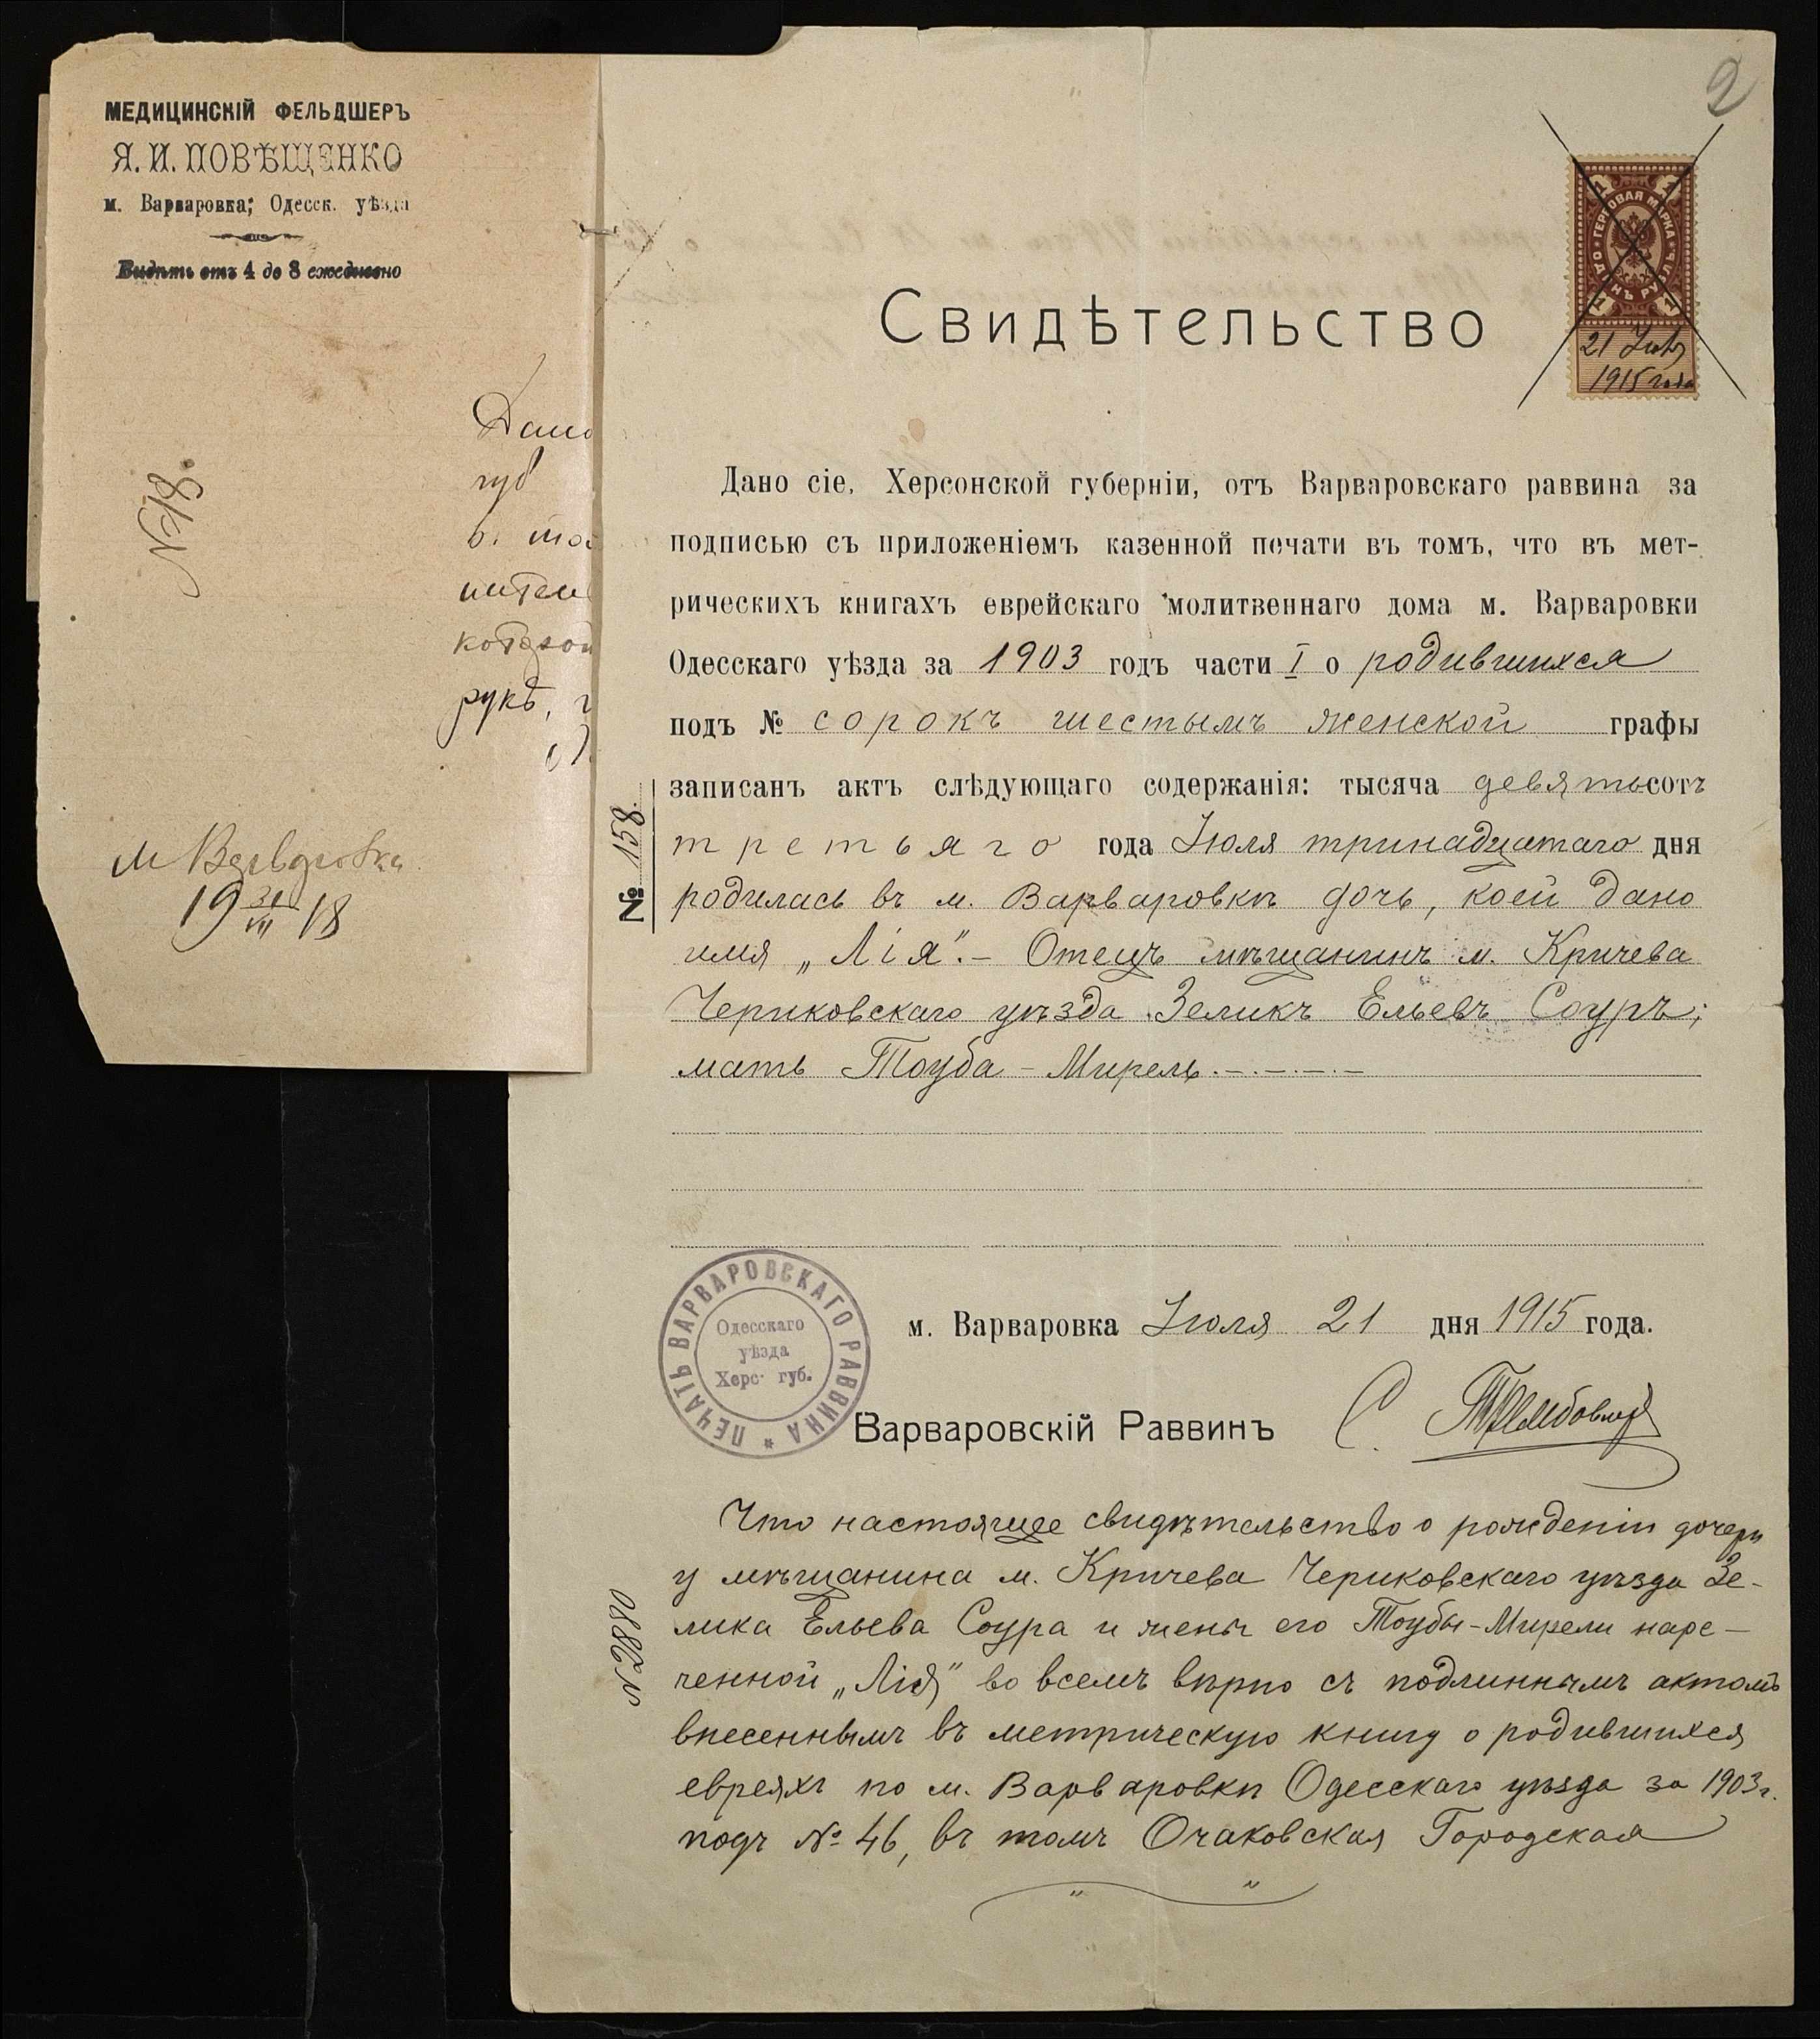 МЕДИЦИНСКІЙ ФЕЛЬДШЕРЪ
Я. И. ПОВѢЩЕНКО
м. Варваровка; Одесск. уѣзда
Видѣть отъ 4 до 8 ежедневно
№ 18
Дано
губ
в. то
ител
котрой
рукѣ, г
м Варваровка
19 31/VII 18
2
ГЕРБОВАЯ МАРКА
ОДИНЪ РУБЛЬ
1 1 1 1
21 Іюля
1915 года
Свидѣтельство
Дано сіе, Херсонской губерніи, отъ Варваровскаго раввина за
подписью съ приложеніемъ казенной печати въ томъ, что въ мет-
рическихъ книгахъ еврейскаго молитвеннаго дома м. Варваровки
Одесскаго уѣзда за 1903 годъ части I о родившихся
подъ № сорокъ шестымъ женской графы
записанъ актъ слѣдующаго содержанія: тысяча девятьсотъ
третьяго года Іюля тринадцатаго дня
родилась въ м. Варваровкѣ дочь, коей дано
имя „Лія“.- Отецъ мѣщанинъ м. Кричева
Чериковскаго уѣзда Зеликъ Ельевъ Соуръ;
мать Тоуба - Мирель.-.-.-.-
№ 158.
ПЕЧАТЬ ВАРВАРОВСКАГО РАВВИНА *
Одесскаго
уѣзда
Херс. губ.
м. Варваровка Іюля 21 дня 1915 года.
Варваровскій Раввинъ С.
Что настоящее свидѣтельство о рожденіи дочери
у мѣщанина м. Кричева Чериковскаго уѣзда Зе-
лика Ельева Соура и жены его Тоубы-Мирели наре-
ченной „Лія“ во всемъ вѣрно съ подлиннымъ актомъ
внесеннымъ въ метрическую книгу о родившихся
евреяхъ по м. Варваровкѣ Одесскаго уѣзда за 1903 г.
подъ № 46, въ томъ Очаковская Городская
№ 2880